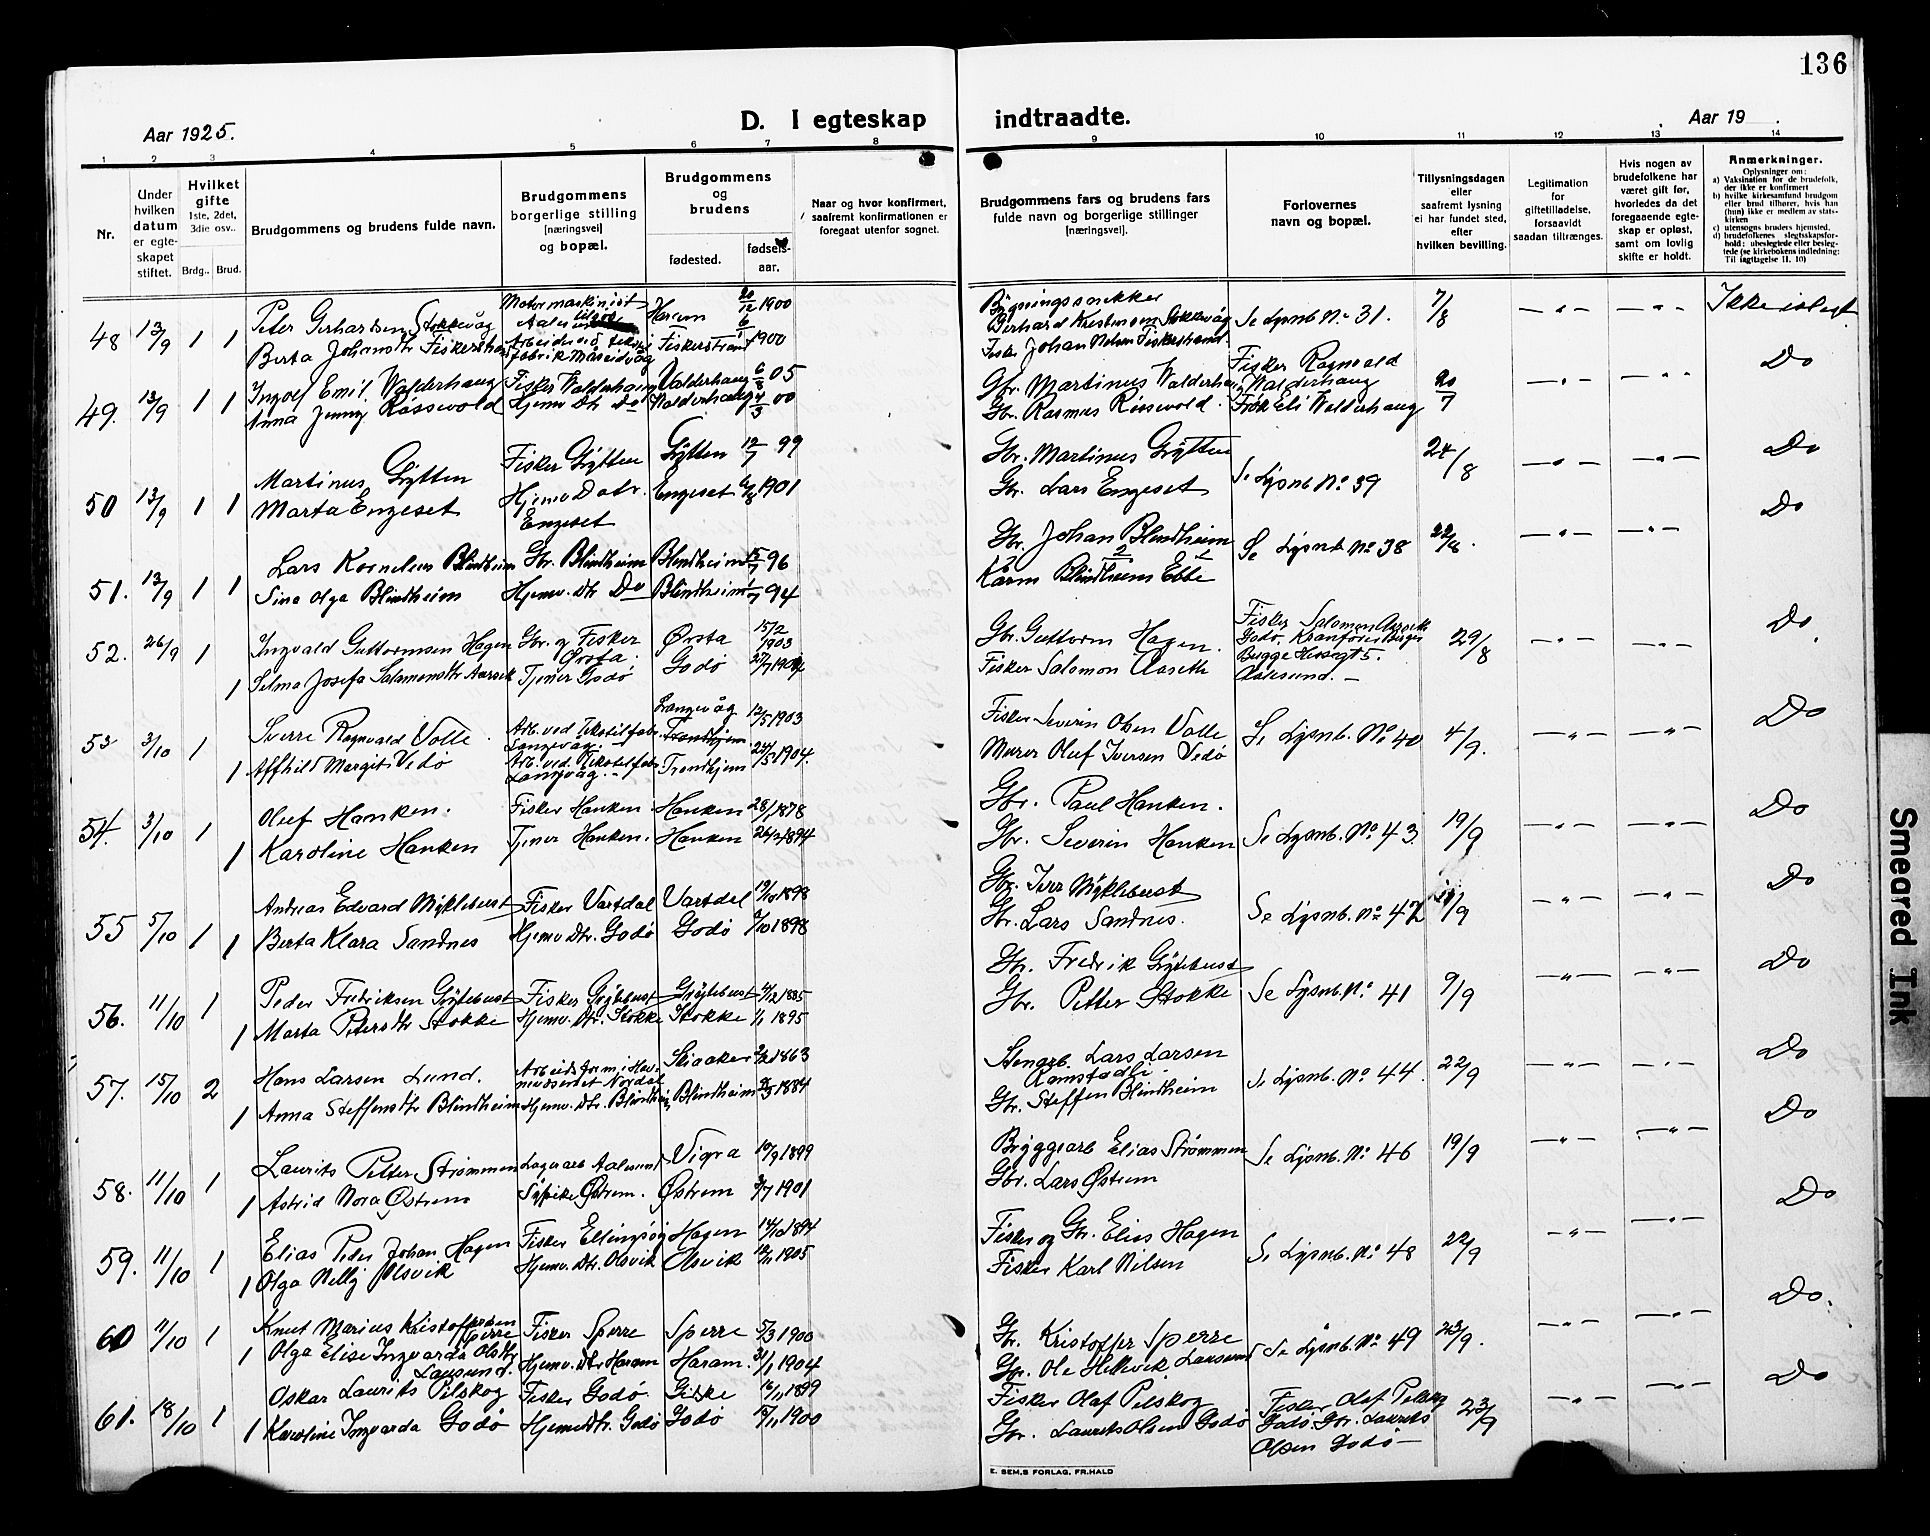 136
Aar 1925.
D. I egteskap indtraadte.
Aar 19 .
1 2 3 4 5 6 7 8 9 10 11 12 13 14
Nr.
Under hvilken datum er egteskapet stiftet.
Hvilket gifte 1ste, 2det, 3die osv..
Brdg.. Brud.
Brudgommens og brudens fulde navn.
Brudgommens borgerlige stilling [næringsvei] og bopæl.
Brudgommens og brudens
fødested.
fødsels-aar.
Naar og hvor konfirmert, saafremt konfirmationen er foregaat utenfor sognet.
Brudgommens fars og brudens fars fulde navn og borgerlige stillinger [næringsvei].
Forlovernes navn og bopæl.
Tillysningsdagen eller saafremt lysning ei har fundet sted, efter hvilken bevilling.
Legitimation for giftetilladelse, forsaavidt saadan tiltrænges.
Hvis nogen av brudefolkene har været gift før, hvorledes da det foregaaende egteskap er opløst, samt om lovlig skifte er holdt.
Anmerkninger.
Oplysninger om:
a) Vaksination for de brudefolk, der ikke er konfirmert
b) hvilke kirkesamfund brudgom eller brud tilhører, hvis han (hun) ikke er medlem av statskirken
c) utensogns bruders hjemsted.
d) brudefolkenes slegtsskapsforhold: ubeslegtede eller beslegtede (se kirkebokens indledning: Til iagttagelse II, 10)
48 13/9 1 1 Peter Gerhardsen Stokkevåg Motormaskinist Harem 20/12 1900 Bygningssnekker Gerhard Kristensen Stokkevåg Se Lysnb No 31. 7/8 — " — — " — Ikke islegt
Berta Johansdtr Fiskerstrand Fiskerstrand 6/1 1900 Fisker Johan Nelsen Fiskerstrand
49. 13/9 1 1 Ingolf Emil Valderhaug Fisker Valderhaug Valderhaug 6/8 05 Gbr. Martinus Valderhaug Fisker Ragnvald Valderhaug 20/7 — " — — " — Do
Anna Jenny Røssevold Hjemv Dtr Do Valderhaug 4/3 00 Gbr. Rasmus Røssevold. Fisk Eli Valderhaug
50 13/9 1 1 Martinus Grytten Fisker Grytten Grytten 12/7 99 Gbr. Martinus Grytten Se Lysnb No 39 24/8 — " — — " — Do
Marta Engeset Hjemv Datr. Engeset Engeset 1901 Gbr. Lars Engeset Do
51. 13/9 1 1 Lars Kornelius Blindheim Gbr. Blindheim Blindheim 15/7 96 Gbr. Johan Blindheim Se Lysnb No 38 22/8. — " — — " —
Sina Olga Blindheim Hjemv. Dtr Do Blindheim 1/7 94 Kårm Blindheim Ebbe
52. 26/9 1 Ingvald Guttormsen Hagen Gbr. og Fisker Ørsta. Ørsta 15/2 1903 Gbr. Guttorm Hagen. Fisker Salomon Aaseth Godø. Kranfører Birger Bugge Hessagt 5. Aalesund. — 29/8 — " — — " — Do
1 Selma Josefa Salamonsdtr Aarseth Tjener Godø Godø 27/7 1904 Fisker Salomon Aaseth
53 3/10 1 Sverre Ragnvald Volle Arb. ved Tekstilfabr. Langevåg. — Langevåg 12/5 1903 Fisker Severin Olsen Volle Se Lysnb. No 40 4/9. — " — — " — Do
1 Affhild Margit Vedø Arb. ved. Tekstilfabr. Langvåg. — Trondhjem 24/5 1904. Murer Oluf Iversen Vedø
54. 3/10 1 Oluf Hanken. Fisker Hanken. Hanken 28/1 1878 Gbr. Paul Hanken. Se Lysnb. No 43. 19/9 — " — — " — Do
1 Karoline Hanken Tjener Hanken. Hanken 26/2 1894 Gbr. Severin Hanken
55 5/10 1 Andreas Edvard Myklebust Fisker Vartdal Vartdal 19/10 1898 Gbr. Iver Myklebust Se Lysnb. No 42 /9 — " — — " — Do
1 Berta Klara Sandnes Hjemv Dtr. Godø Godø 7/10 1898 Gbr. Lars Sandnes.
56. 11/10 1 Peder Fredriksen Grytebust Fisker Grytebust Grytebust 4/12 1885 Gbr. Fredrik Grytebust Se Lysnb. No 41 9/9 — " — — " — Do
1 Marta Petersdtr Stokke Hjemv. Dtr. Stokke Stokke 1/1 1895 Gbr. Petter Stokke
57. 15/10 2 Hans Larsen Lund. Skiaaker 2/2 1863 Stenarb. Lars Larsen Ramstadli. Se Lysnb. No 44. 22/9 — " — — " — Do
1 Anna Steffensdtr Blindheim Hjemv. Dtr. Blindheim Blindheim 1884 Gbr. Steffen Blindheim
58. 11/10 1 Laurits Petter Strømmen Lagerarb Aalesund Vigra 10/9 1899 Bryggearb Elias Strømmen Se Lysnb. No 46 19/9 — " — — " — Do
1 Astrid Nora Østrem Sypike Østrem. Østrem 3/7 1901 Gbr. Lars Østrem
59. 11/10 1 Elias Peder Johan Hagen Fisker Ellingsøy Hagen 14/10 1894 Fisker og Gbr. Elias Hagen Se Lysnb. No 48 22/9 — " — — " — Do
1 Olga Nelly Olsvik Hjemv. Dtr. Olsvik Olsvik 12/11 1905 Fisker Karl Nilsen
60 11/10 1 Knut Marius Kristoffersen Sperre Fisker Sperre Sperre 5/3 1900 Gbr. Kristoffer Sperre Se Lysnb. No 49 23/9. — " — — " — Do.
1 Olga Elise Ingvarda Olsdtr Lausund. Hjemv. dtr Haram Haram. 31/1 1904 Gbr. Ole Hellevik Lausund
61. 18/10 1 Oskar Laurits Pilskog Fisker Godø. Giske 16/11 1899 Fisker Olaf Pilskog Fisker Olaf Pilskog Godø. Gbr. Laurits Olsen Godø — 23/9 — " — — " — Do
1 Karoline Ingvarda Godø Hjemv. Dtr. Godø Godø 15/11 1900 Gbr. Laurits Olsen Godø
E. SEM.S FORLAG, FR.HALD
Smeared Ink